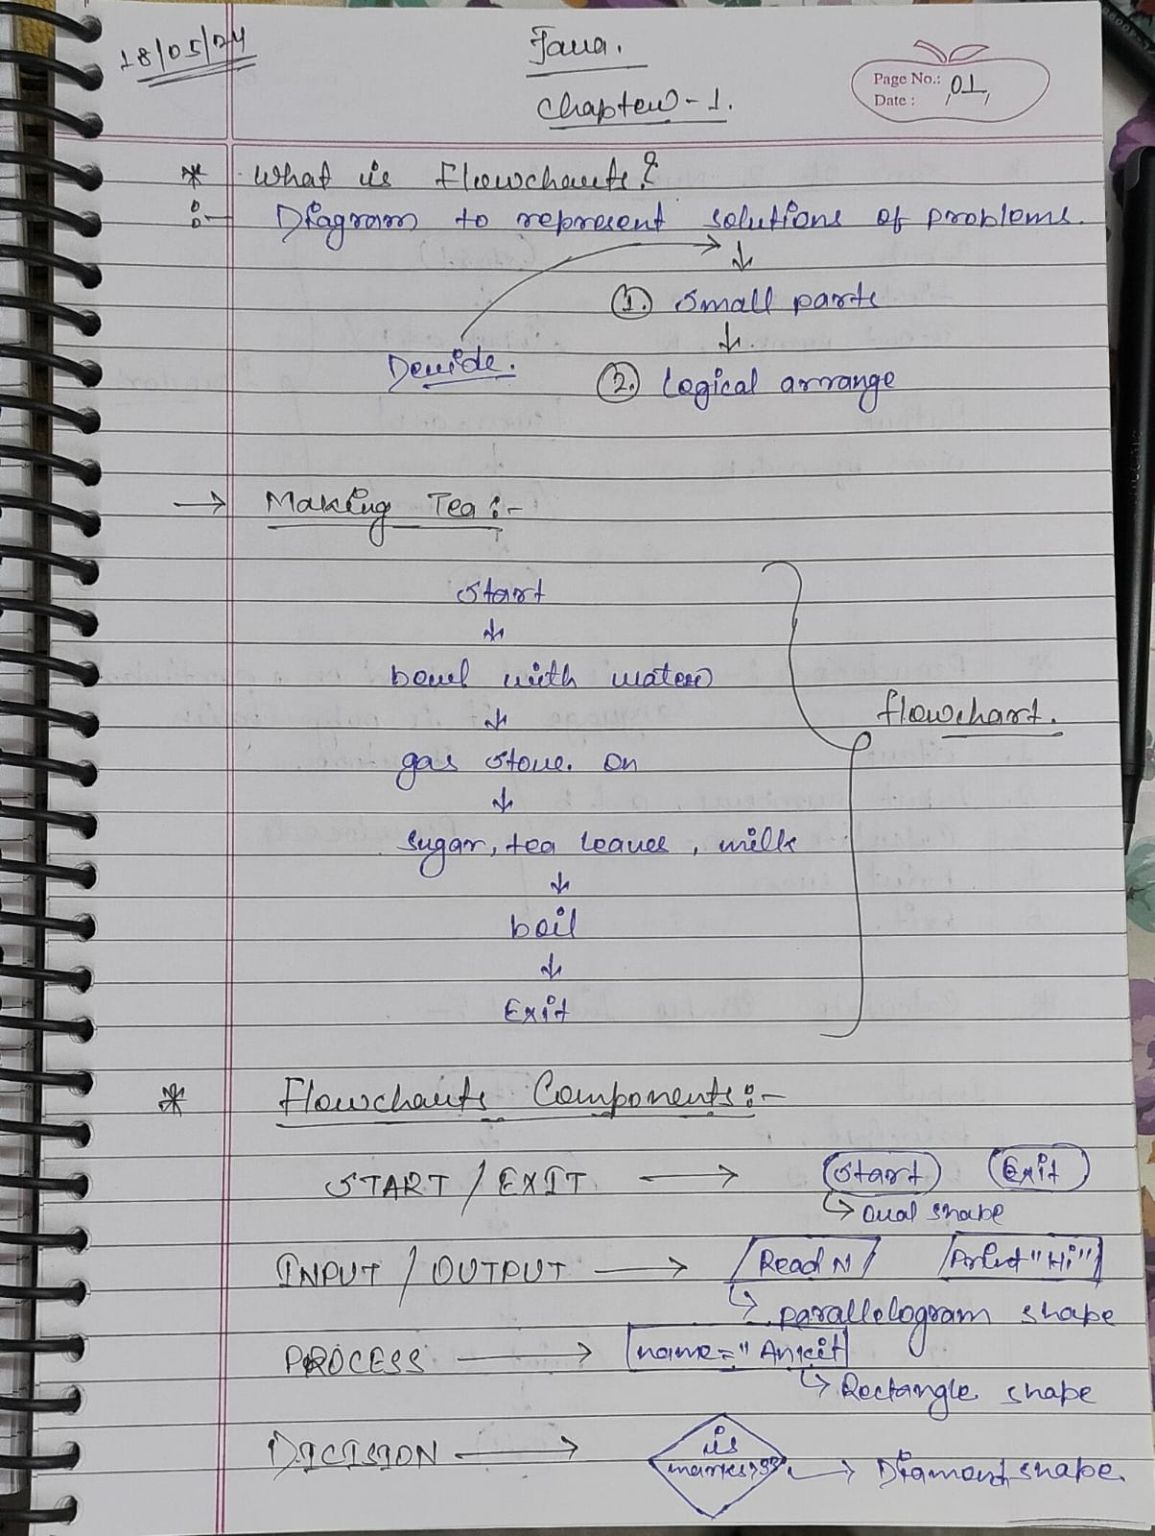 18/05/24
Java.
Chapter - 1.
Page No.: 01
Date :
* What is Flowcharts?
:- Diagram to represent solutions of problems.
↓
① Small parts
↓
Devide.
② Logical arrange
→ Making Tea :-
Start
↓
bowl with water
↓
gas stove. on
↓
Sugar, tea leaves, milk
↓
boil
↓
Exit
flowchart.
* Flowcharts Components :-
START / EXIT → Start Exit
↳ oval shape
INPUT / OUTPUT → Read N Print "Hi"
↳ parallelogram shape
PROCESS → name = "Ankit
↳ Rectangle shape
DICISION → is
marks > 33 → Diamond shape.